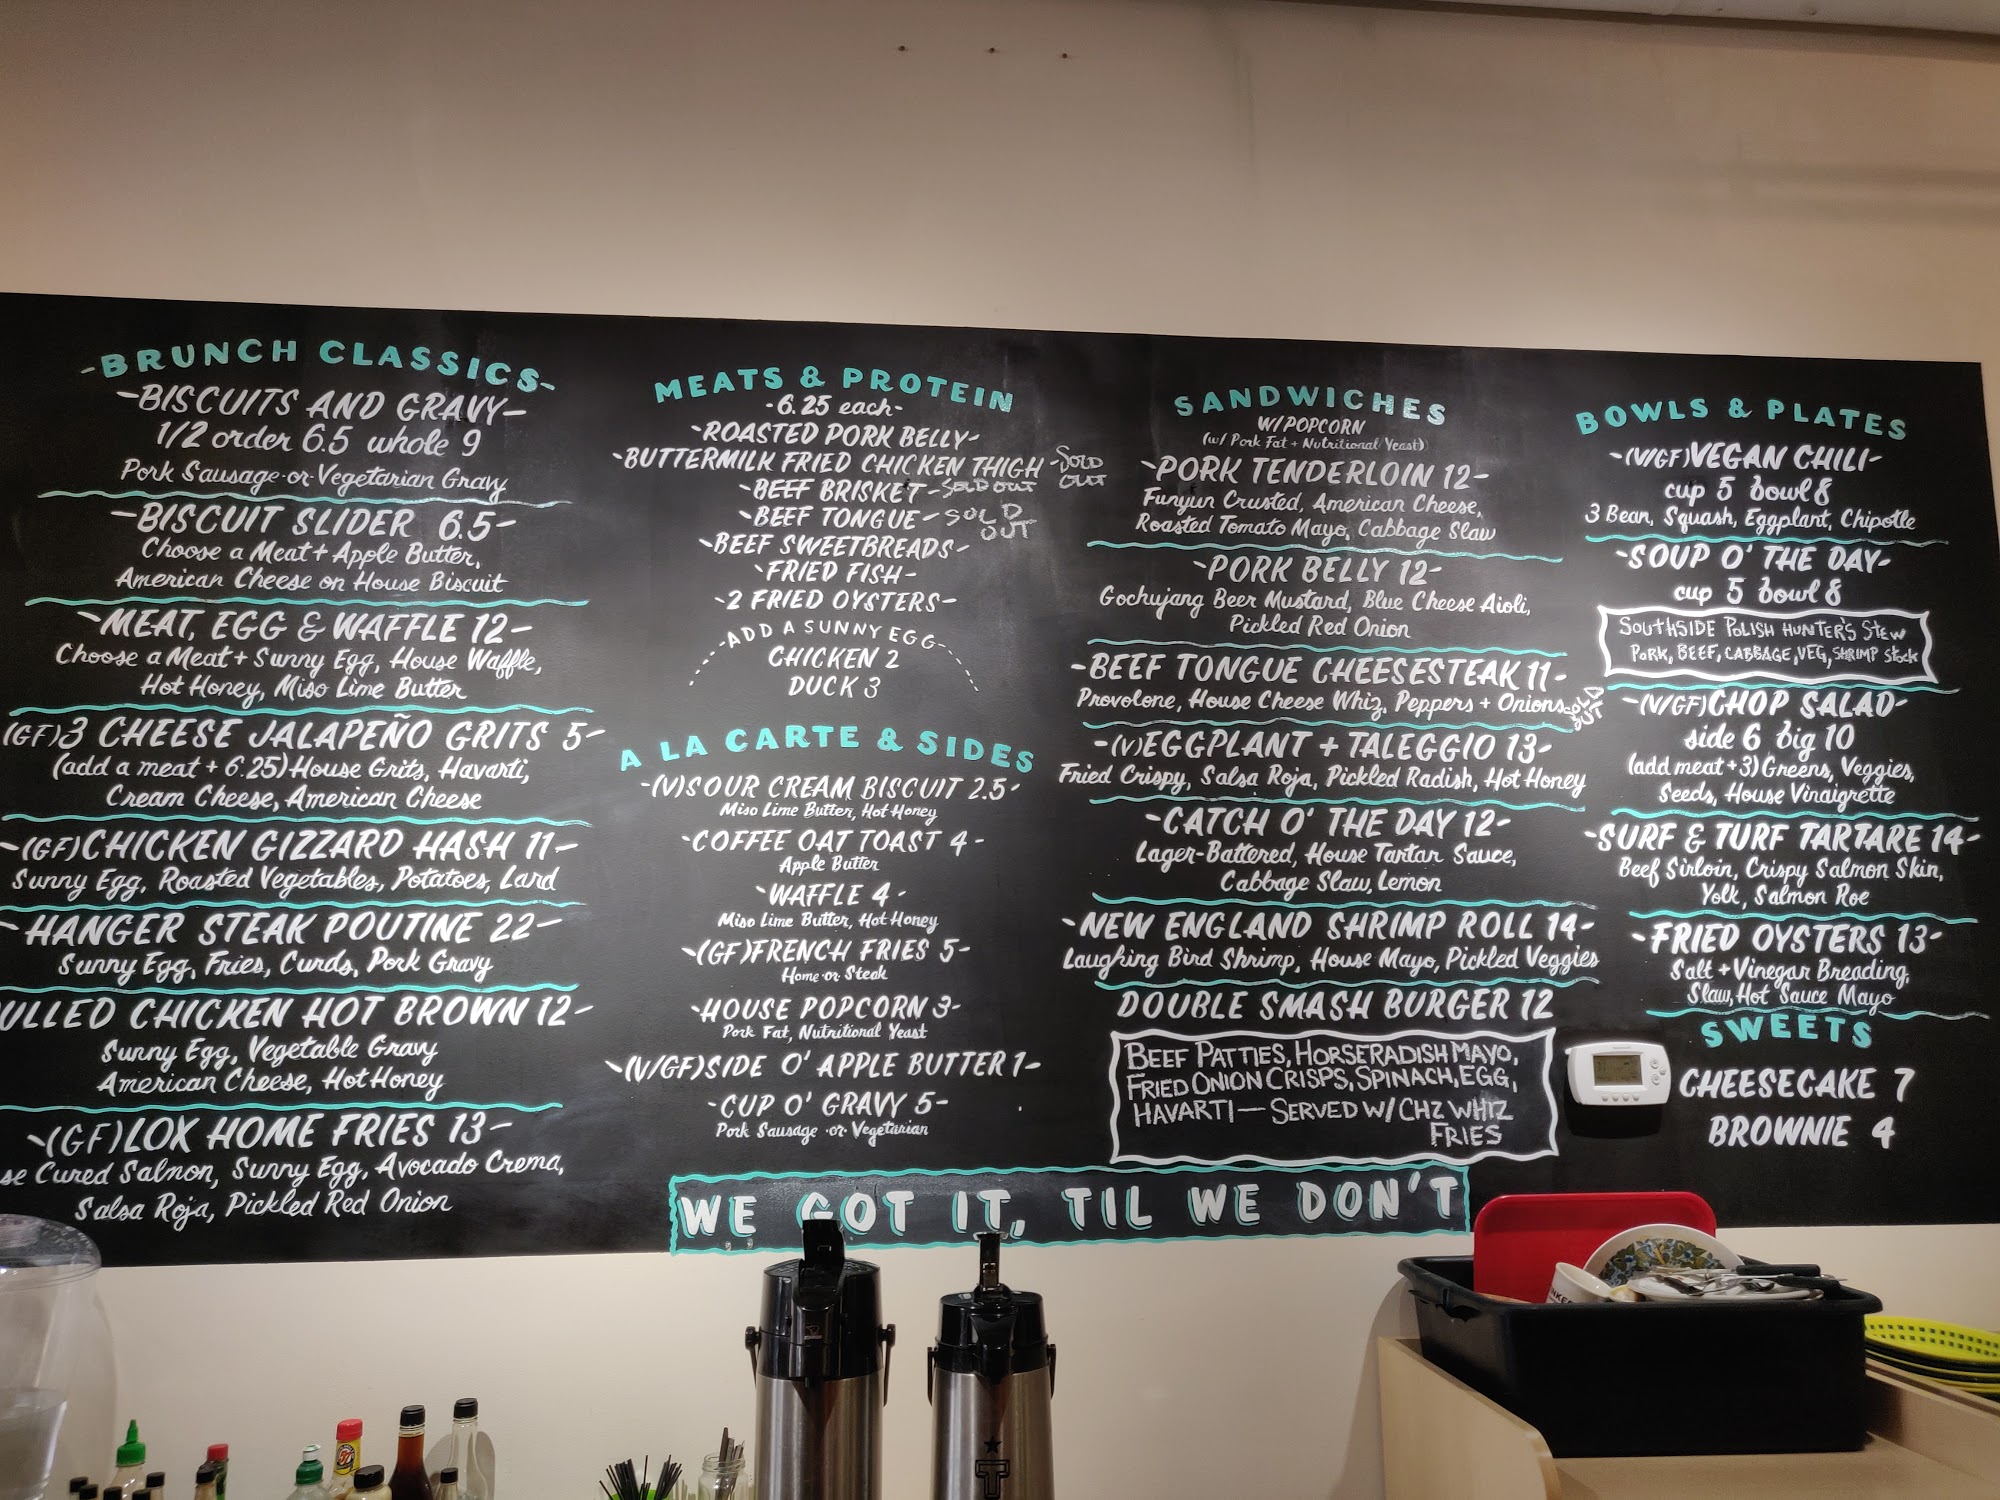 -BRUNCH CLASSICS-
-BISCUITS AND GRAVY-
1/2 order 6.5 whole 9
Pork Sausage-or-Vegetarian Gravy
-BISCUIT SLIDER 6.5-
Choose a Meat + Apple Butter,
American Cheese on House Biscuit
-MEAT, EGG & WAFFLE 12-
Choose a Meat + Sunny Egg, House Waffle,
Hot Honey, Miso Lime Butter
(GF)3 CHEESE JALAPEÑO GRITS 5-
(add a meat + 6.25) House Grits, Havarti,
Cream Cheese, American Cheese
-(GF)CHICKEN GIZZARD HASH 11-
Sunny Egg, Roasted Vegetables, Potatoes, Lard
-HANGER STEAK POUTINE 22-
Sunny Egg, Fries, Curds, Pork Gravy
ULLED CHICKEN HOT BROWN 12-
Sunny Egg, Vegetable Gravy
American Cheese, Hot Honey
-(GF)LOX HOME FRIES 13-
se Cured Salmon, Sunny Egg, Avocado Crema,
Salsa Roja, Pickled Red Onion
MEATS & PROTEIN
-6.25 each-
-ROASTED PORK BELLY-
-BUTTERMILK FRIED CHICKEN THIGH-SOLD OUT
-BEEF BRISKET-SOLD OUT
-BEEF TONGUE-SOLD OUT
-BEEF SWEETBREADS-
-FRIED FISH-
-2 FRIED OYSTERS-
-ADD A SUNNY EGG-
CHICKEN 2
DUCK 3
A LA CARTE & SIDES
-(V)SOUR CREAM BISCUIT 2.5-
Miso Lime Butter, Hot Honey
-COFFEE OAT TOAST 4-
Apple Butter
-WAFFLE 4-
Miso Lime Butter, Hot Honey
-(GF)FRENCH FRIES 5-
Home or Steak
-HOUSE POPCORN 3-
Pork Fat, Nutritional Yeast
-(V/GF)SIDE O' APPLE BUTTER 1-
-CUP O' GRAVY 5-
Pork Sausage -or- Vegetarian
SANDWICHES
W/POPCORN
(w/ Pork Fat + Nutritional Yeast)
-PORK TENDERLOIN 12-
Funyun Crusted, American Cheese,
Roasted Tomato Mayo, Cabbage Slaw
-PORK BELLY 12-
Gochujang Beer Mustard, Blue Cheese Aioli,
Pickled Red Onion
-BEEF TONGUE CHEESESTEAK 11-
Provolone, House Cheese Whiz, Peppers + Onions SOLD OUT
-(V)EGGPLANT + TALEGGIO 13-
Fried Crispy, Salsa Roja, Pickled Radish, Hot Honey
-CATCH O' THE DAY 12-
Lager-Battered, House Tartar Sauce,
Cabbage Slaw, Lemon
-NEW ENGLAND SHRIMP ROLL 14-
Laughing Bird Shrimp, House Mayo, Pickled Veggies
DOUBLE SMASH BURGER 12
BEEF PATTIES, HORSERADISH MAYO,
FRIED ONION CRISPS, SPINACH, EGG,
HAVARTI—SERVED W/ CHZ WHIZ
FRIES
BOWLS & PLATES
-(V/GF)VEGAN CHILI-
cup 5 bowl 8
3 Bean, Squash, Eggplant, Chipotle
-SOUP O' THE DAY-
cup 5 bowl 8
SOUTHSIDE POLISH HUNTER'S STEW
PORK, BEEF, CABBAGE, VEG, SHRIMP Stock
-(V/GF)CHOP SALAD-
side 6 big 10
(add meat +3) Greens, Veggies,
Seeds, House Vinaigrette
-SURF & TURF TARTARE 14-
Beef Sirloin, Crispy Salmon Skin,
Yolk, Salmon Roe
-FRIED OYSTERS 13-
Salt + Vinegar Breading,
Slaw, Hot Sauce Mayo
SWEETS
CHEESECAKE 7
BROWNIE 4
WE GOT IT, TIL WE DON'T